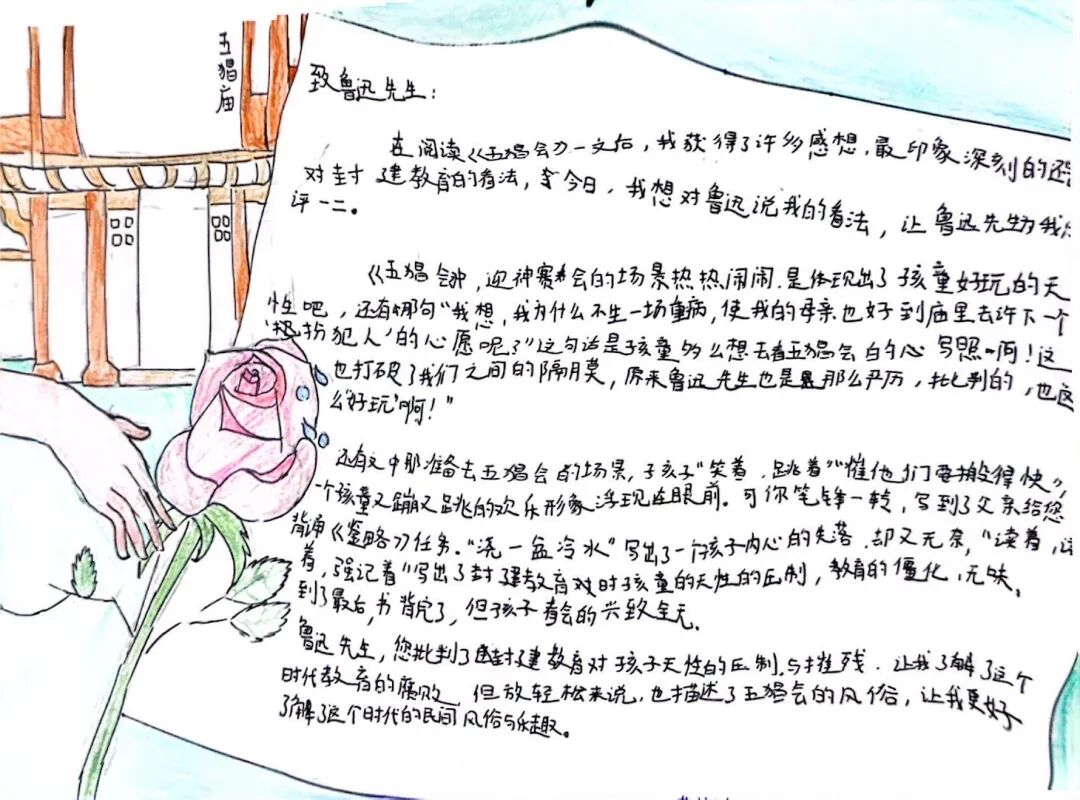 五猖庙
致鲁迅先生:
在阅读《五猖会》一文后,我获得了许多感想,最印象深刻的还
对封建教育的看法,今日,我想对鲁迅说我的看法,让鲁迅先生为我
评一二。
《五猖会》中,迎神赛会的场景热热闹闹.是体现出了孩童好玩的天
性吧,还有哪句“我想,我为什么不生一场重病,使我的母亲也好到庙里去许下一个
‘扮犯人’的心愿呢?”这句话是孩童多么想去看五猖会的心写照啊!这
也打破了我们之间的隔膜,原来鲁迅先生也是那么严历,批判的,也这
么‘好玩’啊!”
还有文中那准备去五猖会的场景,子孩子“笑着,跳着”“催他们要搬得快”,
一个孩童又蹦又跳的欢乐形象浮现在眼前。可你笔锋一转,写到了父亲给您
背诵《鉴略》任务。“浇一盆冷水”写出了一个孩子内心的失落.却又无奈,“读着,读
着,强记着”写出了封建教育对时孩童的天性的压制,教育的僵化,无味。
到了最后,书背完了,但孩子看会的兴致全无.
鲁迅先生,您批判了封建教育对孩子天性的压制与摧残.让我了解了这个
时代教育的腐败,但放轻松来说,也描述了五猖会的风俗,让我更好
了解了这个时代的民间风俗与乐趣。